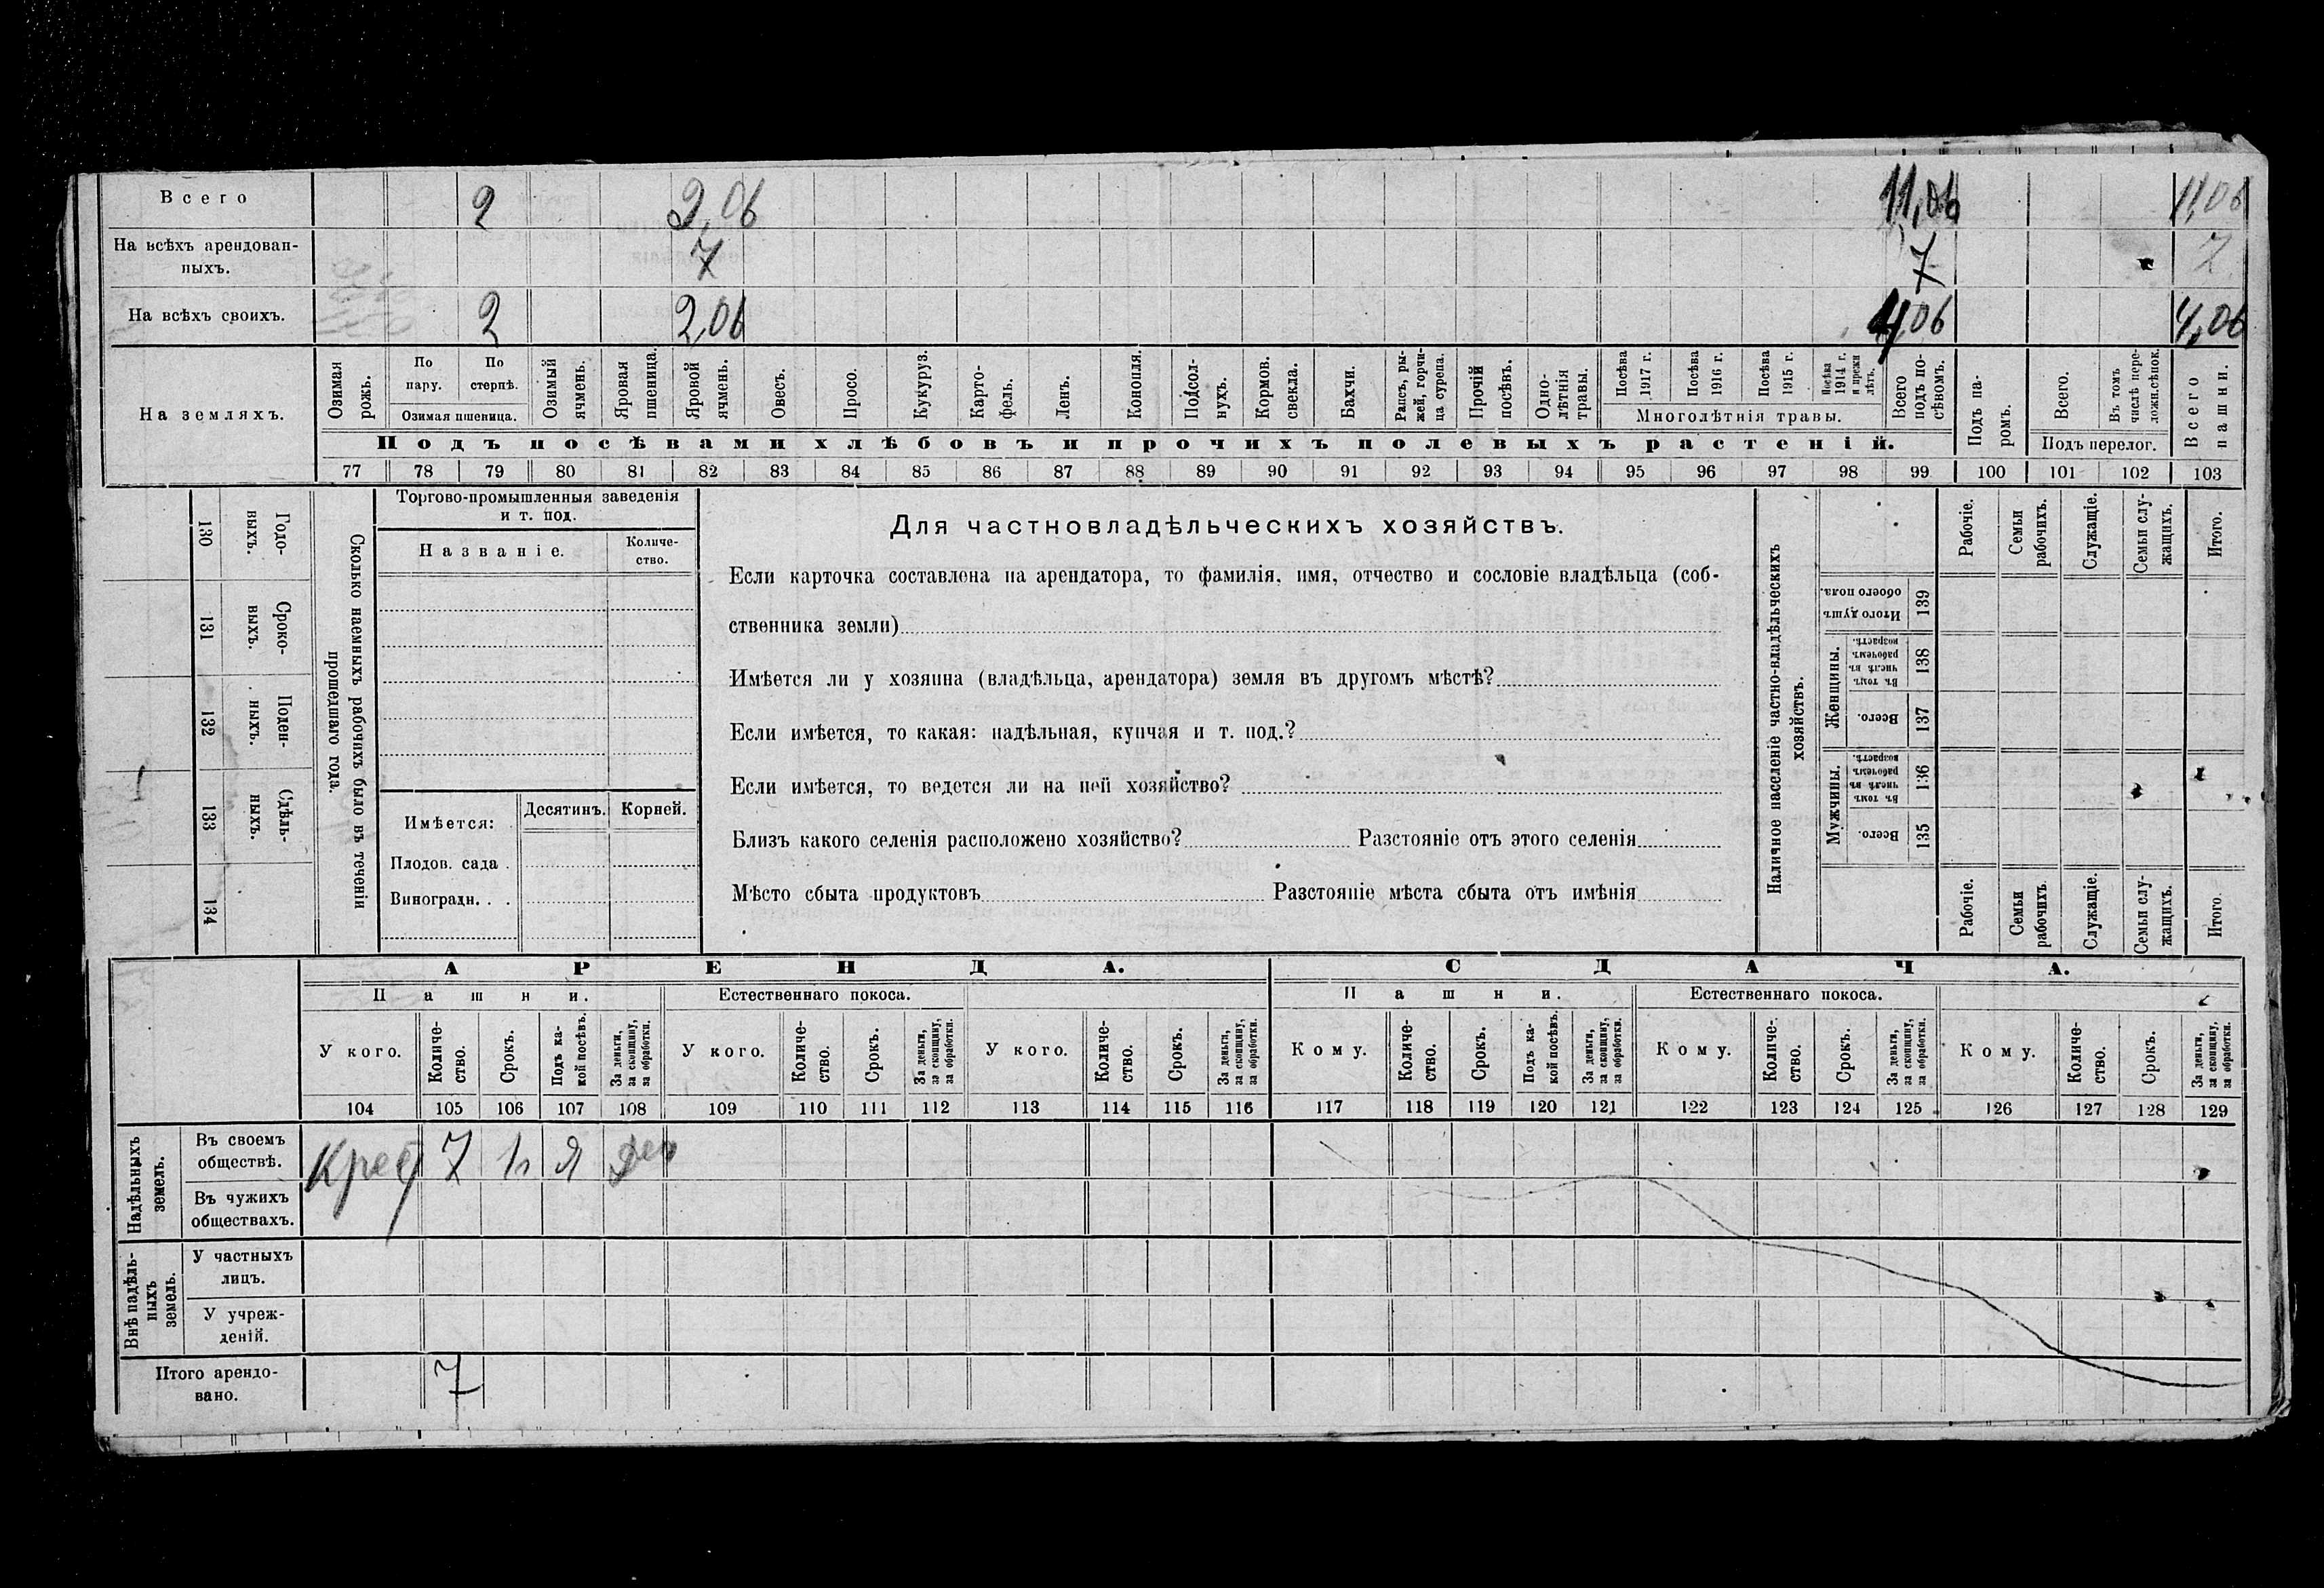 Всего 2 9,06 11,06 11,06
На всѣхъ арендован-
ныхъ. 7 7 7
На всѣхъ своихъ. 2 2,06 4,06 4,06
На земляхъ.
Озимая рожь.
По пару.
По стернѣ.
Озимая пшеница.
Озимый ячмень.
Яровая пшеница.
Яровой ячмень.
Овесъ.
Просо.
Кукуруз.
Карто-
фель.
Ленъ.
Конопля.
Подсол-
нухъ.
Кормов. свекла.
Бахчи.
Рапсъ, ры-
жей, горчи-
ца сурепа.
Прочій посѣвъ.
Одно-
лѣтнія травы.
Посѣва 1917 г.
Посѣва 1916 г.
Посѣва 1915 г.
Посѣва 1914 г. и прежн лѣтъ.
Многолѣтнія травы.
Всего подъ по-
сѣвомъ.
Подъ посѣвами хлѣбовъ и прочихъ полевыхъ растеній.
Подъ па-
ромъ.
Всего.
Въ томъ числѣ пере-
ложн.сѣнок.
Подъ перелог.
Всего пашни.
77 78 79 80 81 82 83 84 85 86 87 88 89 90 91 92 93 94 95 96 97 98 99 100 101 102 103
130 Годо-
выхъ.
131 Сроко-
выхъ.
132 Поден-
ныхъ.
133 Сдѣль-
ныхъ.
134
Сколько наемныхъ рабочихъ было въ теченіи
прошедшаго года.
Торгово-промышленныя заведенія
и т. под.
Названіе.
Количе-
ство.
Имѣется:
Десятинъ. Корней.
Плодов. сада .
Виноградн. . .
Для частновладѣльческихъ хозяйствъ.
Если карточка составлена на арендатора, то фамилія, имя, отчество и сословіе владѣльца (соб-
ственника земли)
Имѣется ли у хозяина (владѣльца, арендатора) земля въ другомъ мѣстѣ?
Если имѣется, то какая: надѣльная, купчая и т. под.?
Если имѣется, то ведется ли на ней хозяйство?
Близъ какого селенія расположено хозяйство? Разстояніе отъ этого селенія
Мѣсто сбыта продуктовъ Разстояніе мѣста сбыта отъ имѣнія
Наличное населеніе частно-владѣльческихъ
хозяйствъ.
Рабочіе.
Семьи рабочихъ.
Служащіе.
Семьи слу-
жащихъ.
Итого.
Итого душъ обоего пола. 139
Женщины.
Въ томъ числѣ въ рабочемъ возрастѣ. 138
Всего. 137
Мужчины.
Въ томъ числѣ въ рабочемъ возрастѣ. 136
Всего. 135
Рабочіе.
Семьи рабочихъ.
Служащіе.
Семьи слу-
жащихъ.
Итого.
АРЕНДА. СДАЧА.
Пашни. Естественнаго покоса. Пашни. Естественнаго покоса.
У кого.
Количе-
ство.
Срокъ.
Подъ ка-
кой посѣвъ.
За деньги, за скопщину, за обработки.
У кого.
Количе-
ство.
Срокъ.
За деньги, за скопщину, за обработки.
У кого.
Количе-
ство.
Срокъ.
За деньги, за скопщину, за обработки.
Кому.
Количе-
ство.
Срокъ.
Подъ ка-
кой посѣвъ.
За деньги, за скопщину, за обработки.
Кому.
Количе-
ство.
Срокъ.
За деньги, за скопщину, за обработки.
Кому.
Количе-
ство.
Срокъ.
За деньги, за скопщину, за обработки.
104 105 106 107 108 109 110 111 112 113 114 115 116 117 118 119 120 121 122 123 124 125 126 127 128 129
Надѣльныхъ земель.
Въ своемъ
обществѣ. Крест 7 Я
Въ чужихъ
обществахъ.
Внѣ надѣль-
ныхъ земель.
У частныхъ
лицъ.
У учреж-
деній.
Итого арендо-
вано. 7